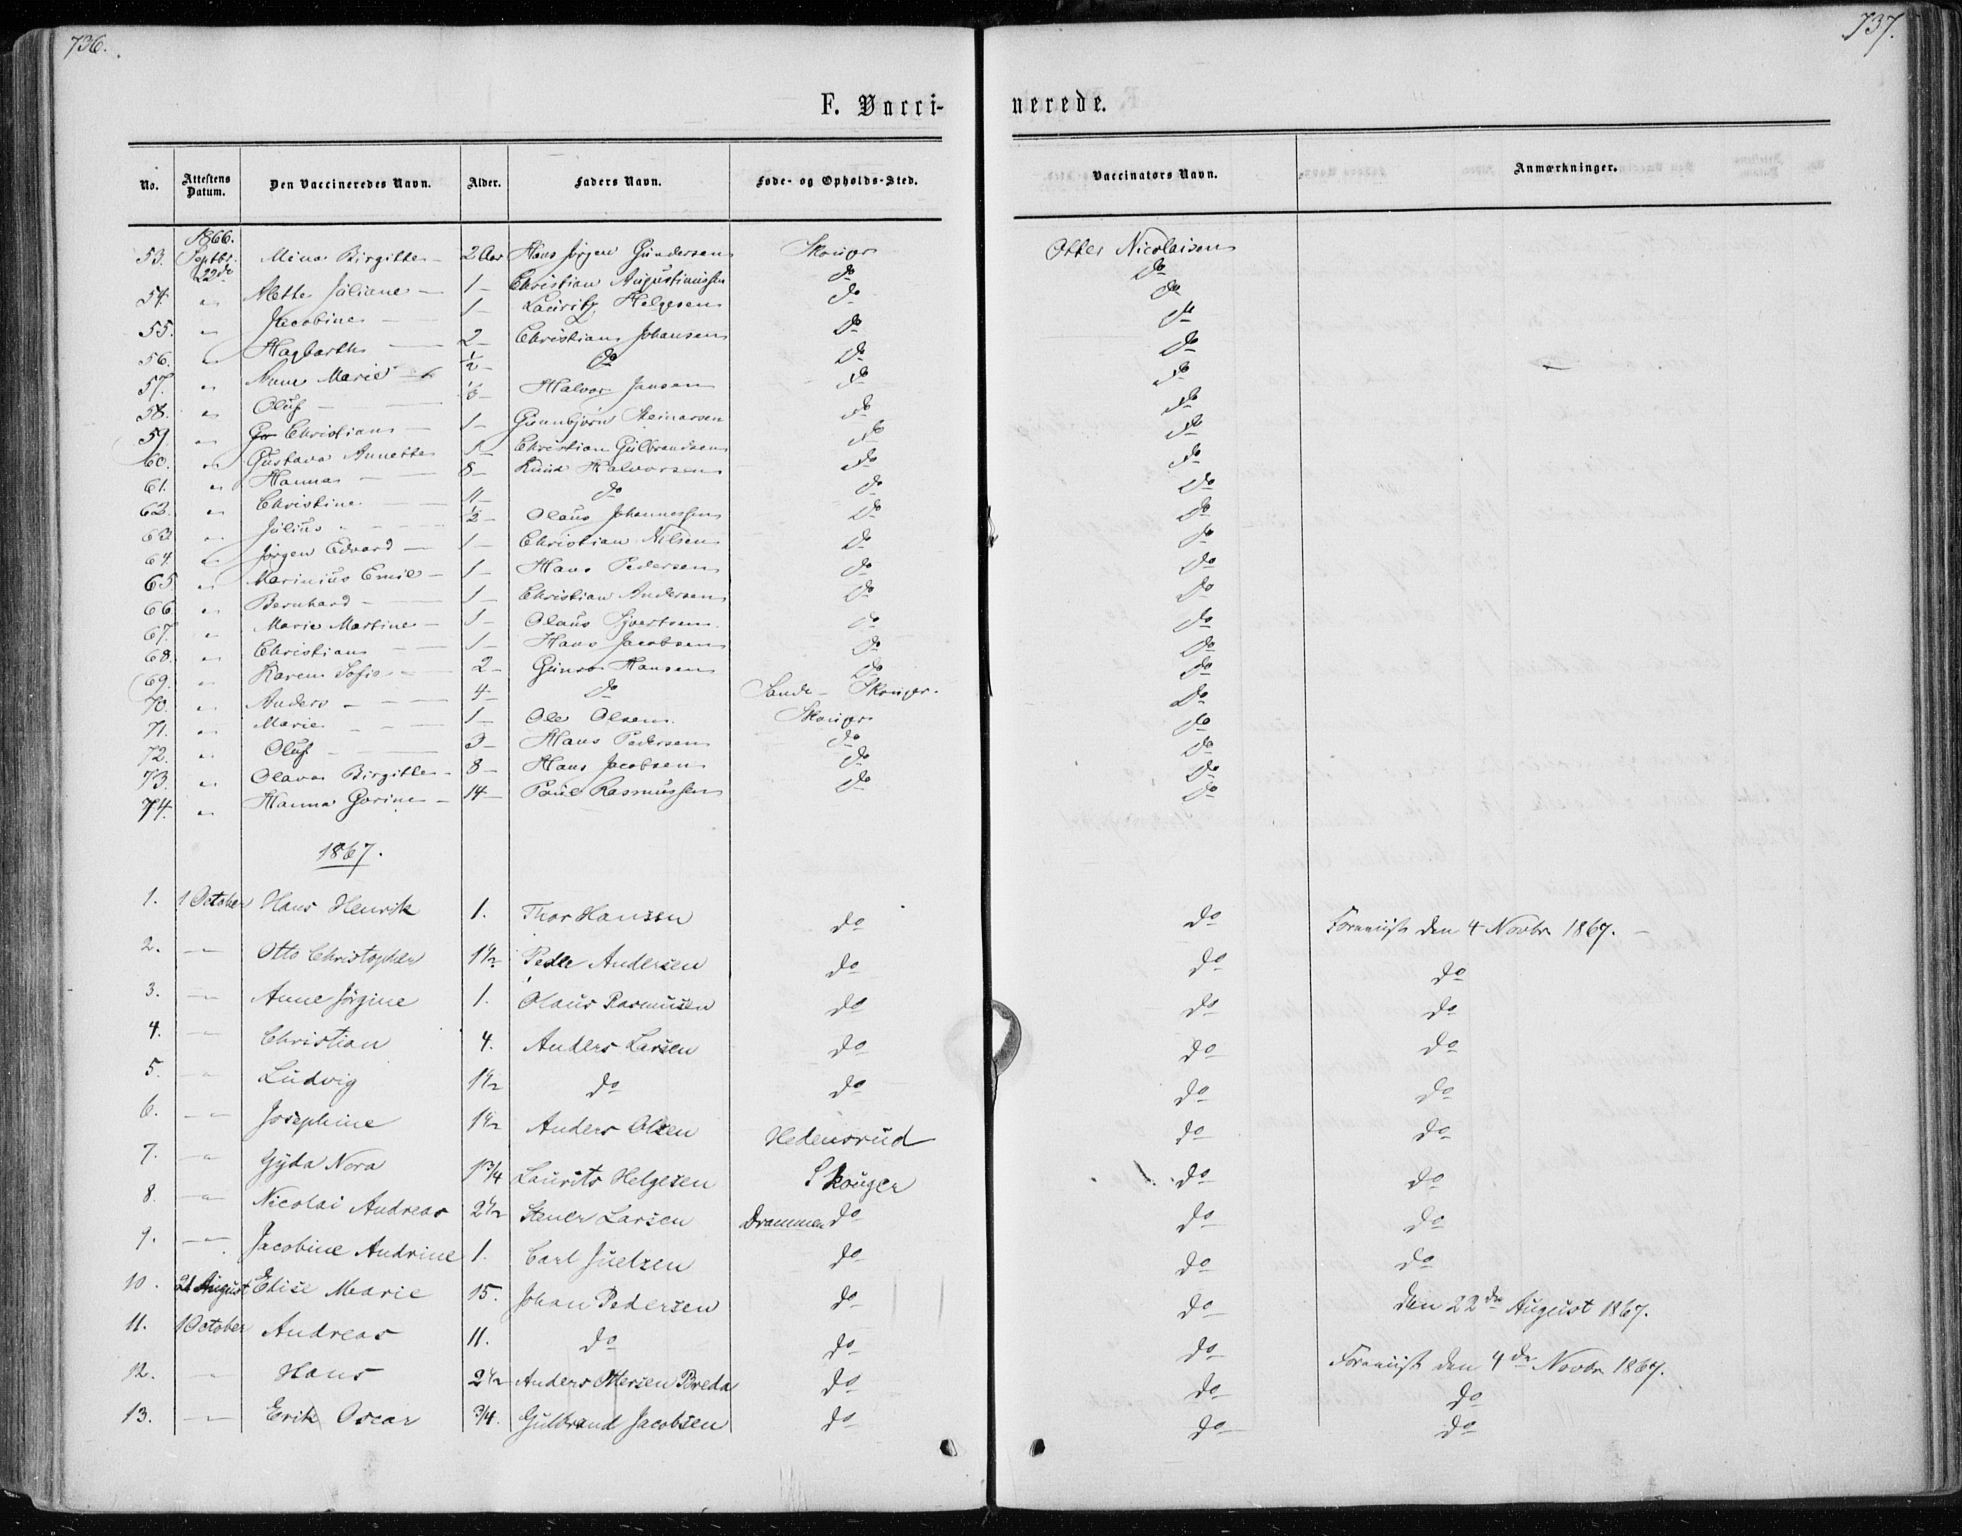 736.
737.
F. Vacci-
nerede.
No. Attestens Datum. Den Vaccineredes Navn. Alder. Faders Navn. Føde- og Opholds-Sted. Vaccinators Navn. Anmærkninger.
1866.
53. Septbr. 22de Mina Birgitte 2 Aar Hans Jørgen Gundersen Skouger Otter Nicolaisen
54. " Mette Juliane 1 Christian Augustinussen do do
55. " Jacobine 1 Lauritz Helgesen do do
56. " Hagbarth 2 Christian Johansen do do
57. " Anne Marie 1/2 do do do
58. " Oluf Halvor Jansen do do
59. " Christian 1 Gunbjørn Steinarsen do do
60. " Gustava Annette 1 Christian Gulbrandsen do do
61. " Hanna 8 Knud Halvorsen do do
62. " Christine 11 do do do
63. " Julius 1/2 Olaus Johannessen do do
64. " Jørgen Edvard 1 Christian Nilsen do do
65 " Marinius Emil 1 Hans Pedersen do do
66. " Bernhard 1 Christian Andersen do do
67. " Marie Martine 1 Olaus Syvertsen do do
68. " Christian 1 Hans Jacobsen do do
69. " Karen Sofie 2 Gunro Hansen do do
70. " Anders 4 do Sande - Skouger. do
71. " Marie 1 Ole Olsen Skouger do
72. " Oluf 3 Hans Pedersen do do
73. " Olava Birgitte 8 Hans Jacobsen do do
74. " Hanna Gorine 14 Paul Rasmussen do do
1867.
1. 1 October Hans Henrik 1. Thor Hansen do do Foreviist den 4 Novbr 1867.
2. " Otto Christopher 1 1/2 Peder Andersen do do do
3. " Anne Jørgine 1. Olaus Rasmussen do do do
4. " Christian 4. Anders Larsen do do do
5. " Ludvig 1 1/2 do do do do
6. " Josephine 1 1/2 Anders Olsen Hedensrud do do
7. " Gyda Nora 1 3/4 Laurits Helgesen Skouger do do
8. " Nicolai Andreas 2 1/2 Stener Larsen Drammen do do do
9. " Jacobine Andrine 1. Carl Juelsen do do do
10. 21 August Elise Marie 15. Johan Pedersen do do den 22de August 1867.
11. 1 October Andreas 11. do do do Foreviist den 4de Novbr 1867.
12. " Hans 2 1/2 Anders Ottersen Breda do do do
13. " Erik Oscar 3/4. Gulbrand Jacobsen do do do